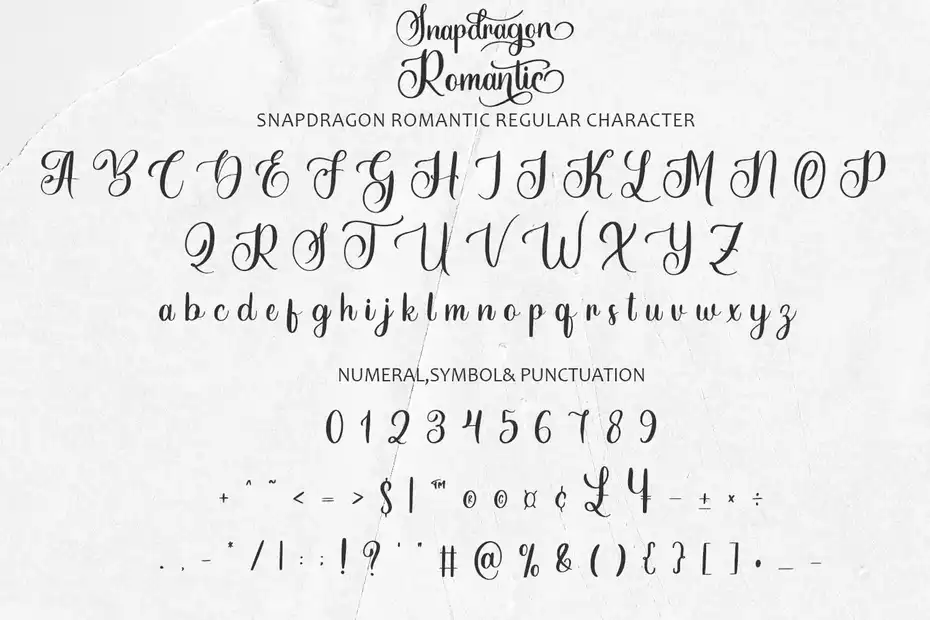 Snapdragon
Romantic
SNAPDRAGON ROMANTIC REGULAR CHARACTER
A B C D E F G H I J K L M N O P
Q R S T U V W X Y Z
a b c d e f g h i j k l m n o p q r s t u v w x y z
NUMERAL,SYMBOL& PUNCTUATION
0 1 2 3 4 5 6 7 8 9
+ ^ ~ < = > $ | ™ ® © ¤ ¢ £ ¥ − ± × ÷
. , - * / | : ; ! ? ' " # @ % & ( ) { } [ ] • _ –